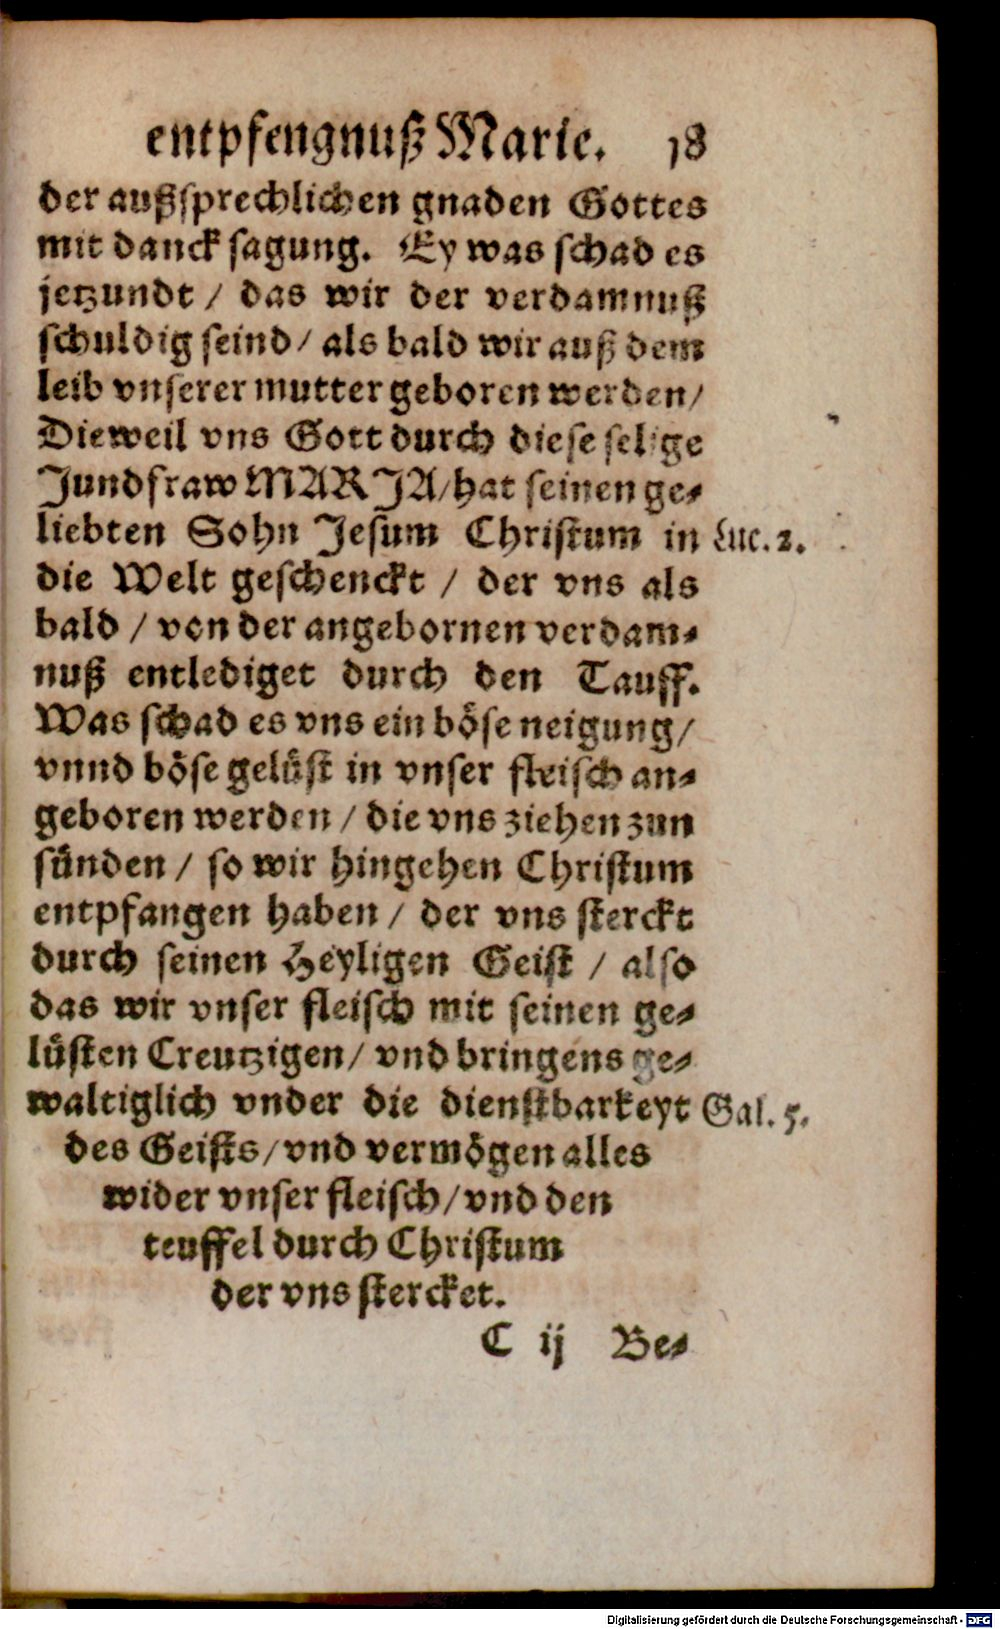 entpfengnuß Marie. 18
der außsprechlichen gnaden Gottes
mit danck sagung. Ey was schad es
jetzundt / das wir der verdamnuß
schuldig seind / als bald wir auß dem
leib vnserer mutter geboren werden /
Dieweil vns Gott durch diese selige
Jundfraw MARJA / hat seinen ge⸗
liebten Sohn Jesum Christum in Luc. 2.
die Welt geschenckt / der vns als
bald / von der angebornen verdam⸗
nuß entlediget durch den Tauff.
Was schad es vns ein böse neigung /
vnnd böse gelüst in vnser fleisch an⸗
geboren werden / die vns ziehen zun
sünden / so wir hingehen Christum
entpfangen haben / der vns sterckt
durch seinen Heyligen Geist / also
das wir vnser fleisch mit seinen ge⸗
lüsten Creutzigen / vnd bringens ge⸗
waltiglich vnder die dienstbarkeyt Gal. 5.
des Geists / vnd vermögen alles
wider vnser fleisch / vnd den
teuffel durch Christum
der vns stercket.
C ij Be⸗
Digitalisierung gefördert durch die Deutsche Forschungsgemeinschaft - DFG